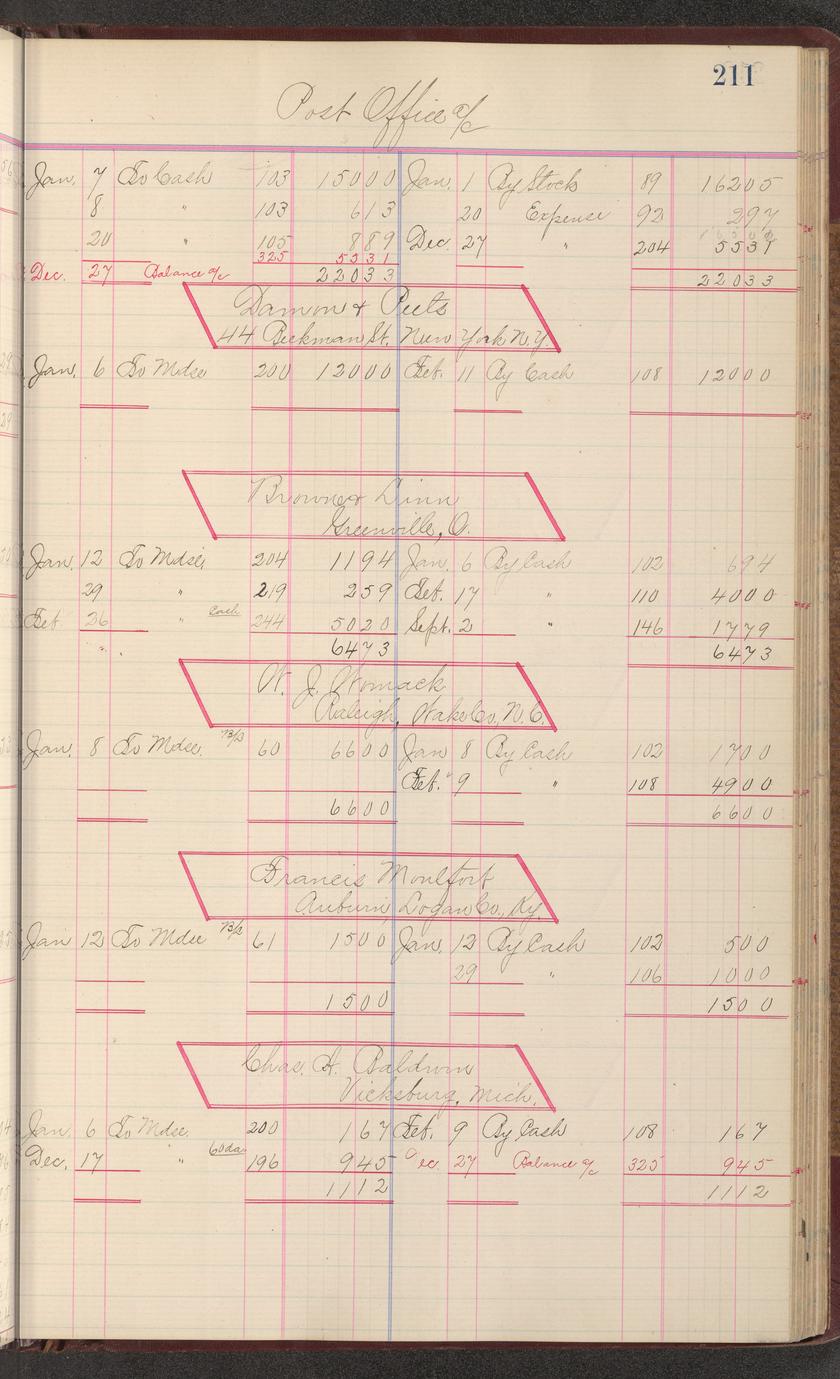 211
Post Office a/c
Jan. 7 To Cash 103 15000 Jan. 1 By Stock 89 16205
8 " 103 613 20 Expense 92 297
20 " 105 889 Dec. 27 " 204 5531
325 5531
Dec. 27 Balance a/c 22033 22033
Damon & Peets
44 Beekman St. New York N.Y.
Jan. 6 To Mdse 200 12000 Feb. 11 By Cash 108 12000
Browne & Dinn
Greenville, O.
Jan. 12 To Mdse. 204 1194 Jan. 6 By Cash 102 694
29 " 219 259 Feb. 17 " 110 4000
Feb 26 " Cash 244 5020 Sept. 2 " 146 1779
6473 6473
W. J. Womack
Raleigh, Wake Co., N.C.
Jan. 8 To Mdse. 60 6600 Jan 8 By Cash 102 1700
Feb. 9 " 108 4900
6600 6600
Francis Moulfort
Auburn, Logan Co., Ky.
Jan 12 To Mdse 61 1500 Jan. 12 By Cash 102 500
29 " 106 1000
1500 1500
Chas. H. Baldwin
Vicksburg, Mich.
Jan. 6 To Mdse. 200 167 Feb. 9 By Cash 108 167
Dec. 17 " 60 da 196 945 Dec. 27 Balance a/c 325 945
1112 1112